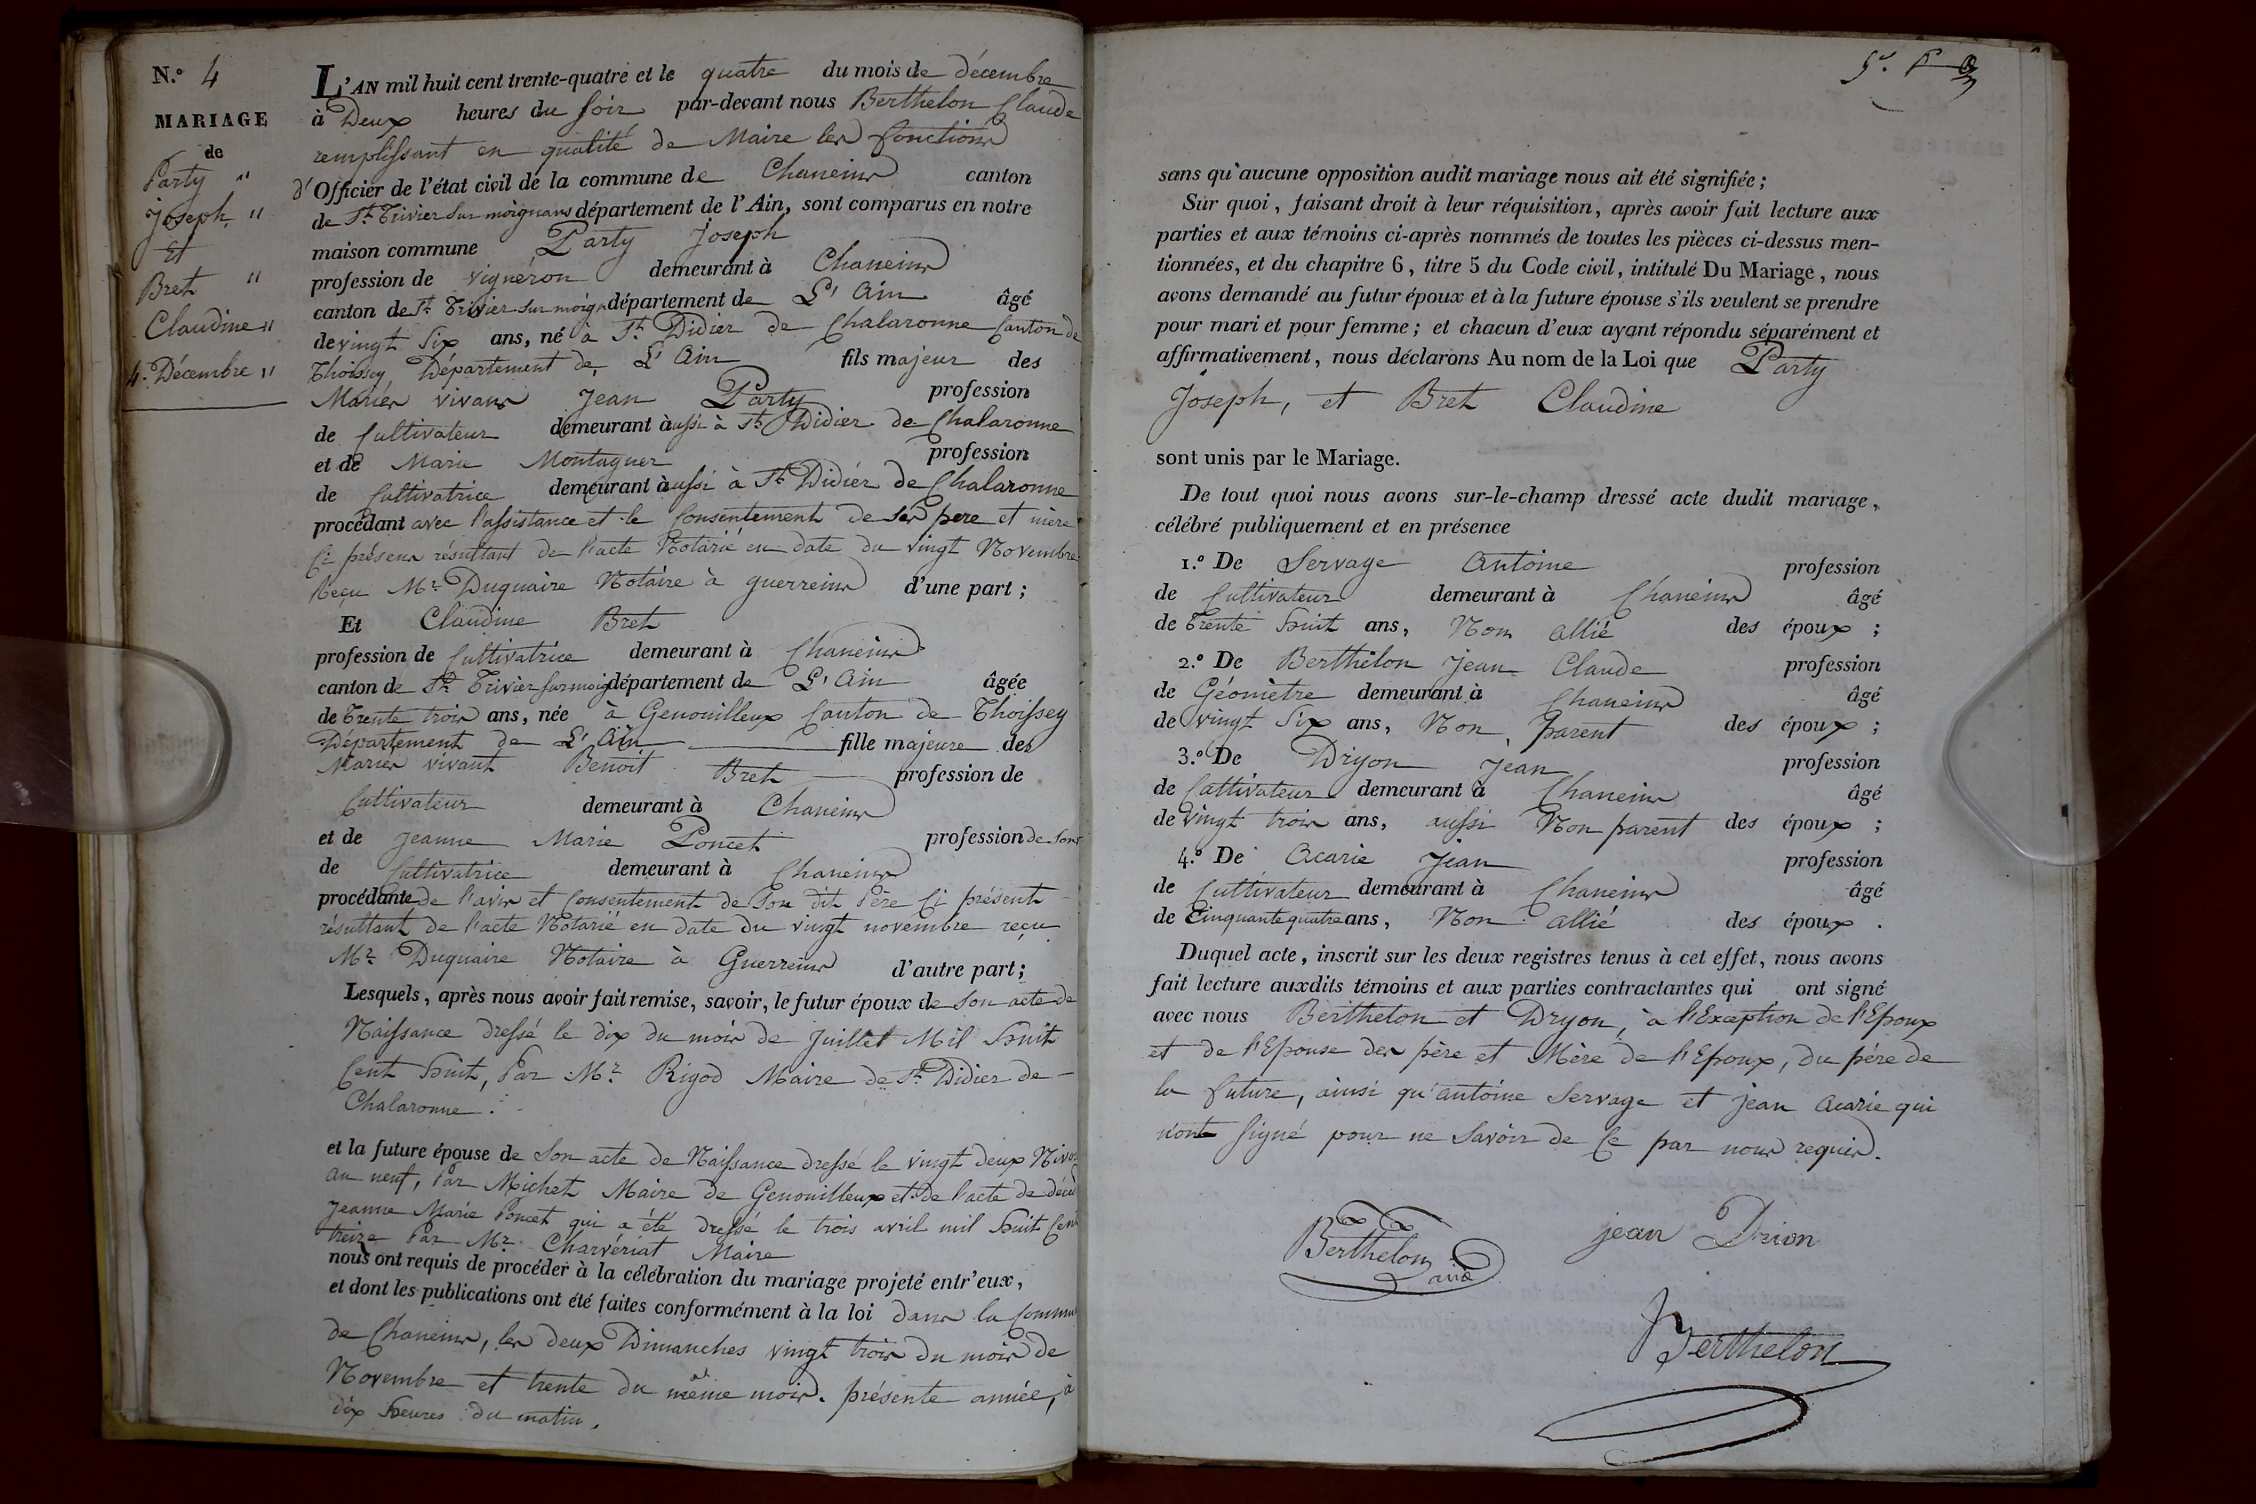 N.° 4
MARIAGE
de
Party "
Joseph "
Et
Bret "
Claudine "
4. Décembre "
L'AN mil huit cent trente-quatre et le quatre du mois de décembre
à Deux heures du soir par-devant nous Berthelon Claude
remplissant en qualité de Maire les fonctions
d'Officier de l'état civil de la commune de Chaneins canton
de St. Trivier sur moignans département de l'Ain, sont comparus en notre
maison commune Party Joseph
profession de vigneron demeurant à Chaneins
canton de St. Trivier sur moign département de L'Ain âgé
de vingt Six ans, né à St. Didier de Chalaronne Canton de
Thoissey Département de L'Ain fils majeur des
Mariés vivans Jean Party profession
de Cultivateur demeurant aussi à St. Didier de Chalaronne
et de Marie Montagner profession
de Cultivatrice demeurant aussi à St. Didier de Chalaronne
procédant avec l'assistance et le Consentement de ses père et mère
Ci présens résultant de l'acte Notarié en date du vingt Novembre
Reçu Mr. Duquaire Notaire à guerreins d'une part ;
Et Claudine Bret
profession de Cultivatrice demeurant à Chaneins
canton de St. Trivier sur moig département de L'Ain âgée
de trente trois ans, née à Genouilleux Canton de Thoissey
Département de L'Ain fille majeure des
Mariés vivant Benoit Bret profession de
Cultivateur demeurant à Chaneins
et de Jeanne Marie Poncet profession de son
de Cultivatrice demeurant à Chaneins
procédante de l'avis et Consentement de Son dit Père Ci présent
résultant de l'acte Notarié en date du vingt novembre reçu
Mr. Duquaire Notaire à Guerreins d'autre part ;
Lesquels, après nous avoir fait remise, savoir, le futur époux de Son acte de
Naissance dressé le dix du mois de Juillet Mil Huit
Cent Huit, Par Mr. Rigod Maire de St. Didier de
Chalaronne.
et la future épouse de Son acte de Naissance dressé le vingt deux Nivo
an neuf, Par Michet Maire de Genouilleux et de l'acte de décè
Jeanne Marie Poncet qui a été dressé le trois avril mil Huit Cent
treize Par Mr. Charvériat Maire
nous ont requis de procéder à la célébration du mariage projeté entr'eux,
et dont les publications ont été faites conformément à la loi dans la Commu
de Chaneins, les deux Dimanches vingt trois du mois de
Novembre et trente du même mois. présente année, à
dix heures du matin.
sans qu'aucune opposition audit mariage nous ait été signifiée ;
Sur quoi, faisant droit à leur réquisition, après avoir fait lecture aux
parties et aux témoins ci-après nommés de toutes les pièces ci-dessus men-
tionnées, et du chapitre 6, titre 5 du Code civil, intitulé Du Mariage, nous
avons demandé au futur époux et à la future épouse s'ils veulent se prendre
pour mari et pour femme ; et chacun d'eux ayant répondu séparément et
affirmativement, nous déclarons Au nom de la Loi que Party
Joseph, et Bret Claudine
sont unis par le Mariage.
De tout quoi nous avons sur-le-champ dressé acte dudit mariage,
célébré publiquement et en présence
1.° De Servage Antoine profession
de Cultivateur demeurant à Chaneins âgé
de trente Huit ans, Non allié des époux ;
2.° De Berthelon Jean Claude profession
de Géomètre demeurant à Chaneins âgé
de vingt Six ans, Non parent des époux ;
3.° De Dryon Jean profession
de Cultivateur demeurant à Chaneins âgé
de vingt trois ans, aussi Non parent des époux ;
4.° De Acarie Jean profession
de Cultivateur demeurant à Chaneins âgé
de Cinquante quatre ans, Non allié des époux .
Duquel acte, inscrit sur les deux registres tenus à cet effet, nous avons
fait lecture auxdits témoins et aux parties contractantes qui ont signé
avec nous Berthelon et Dryon, à l'Exception de l'Epoux
et de l'Epouse des père et Mère de l'Epoux, du père de
la future, ainsi qu'antoine Servage et Jean Acarie qui
n'ont signé pour ne Savoir de Ce par nous requis.
Berthelon
jean Drion
Berthelon